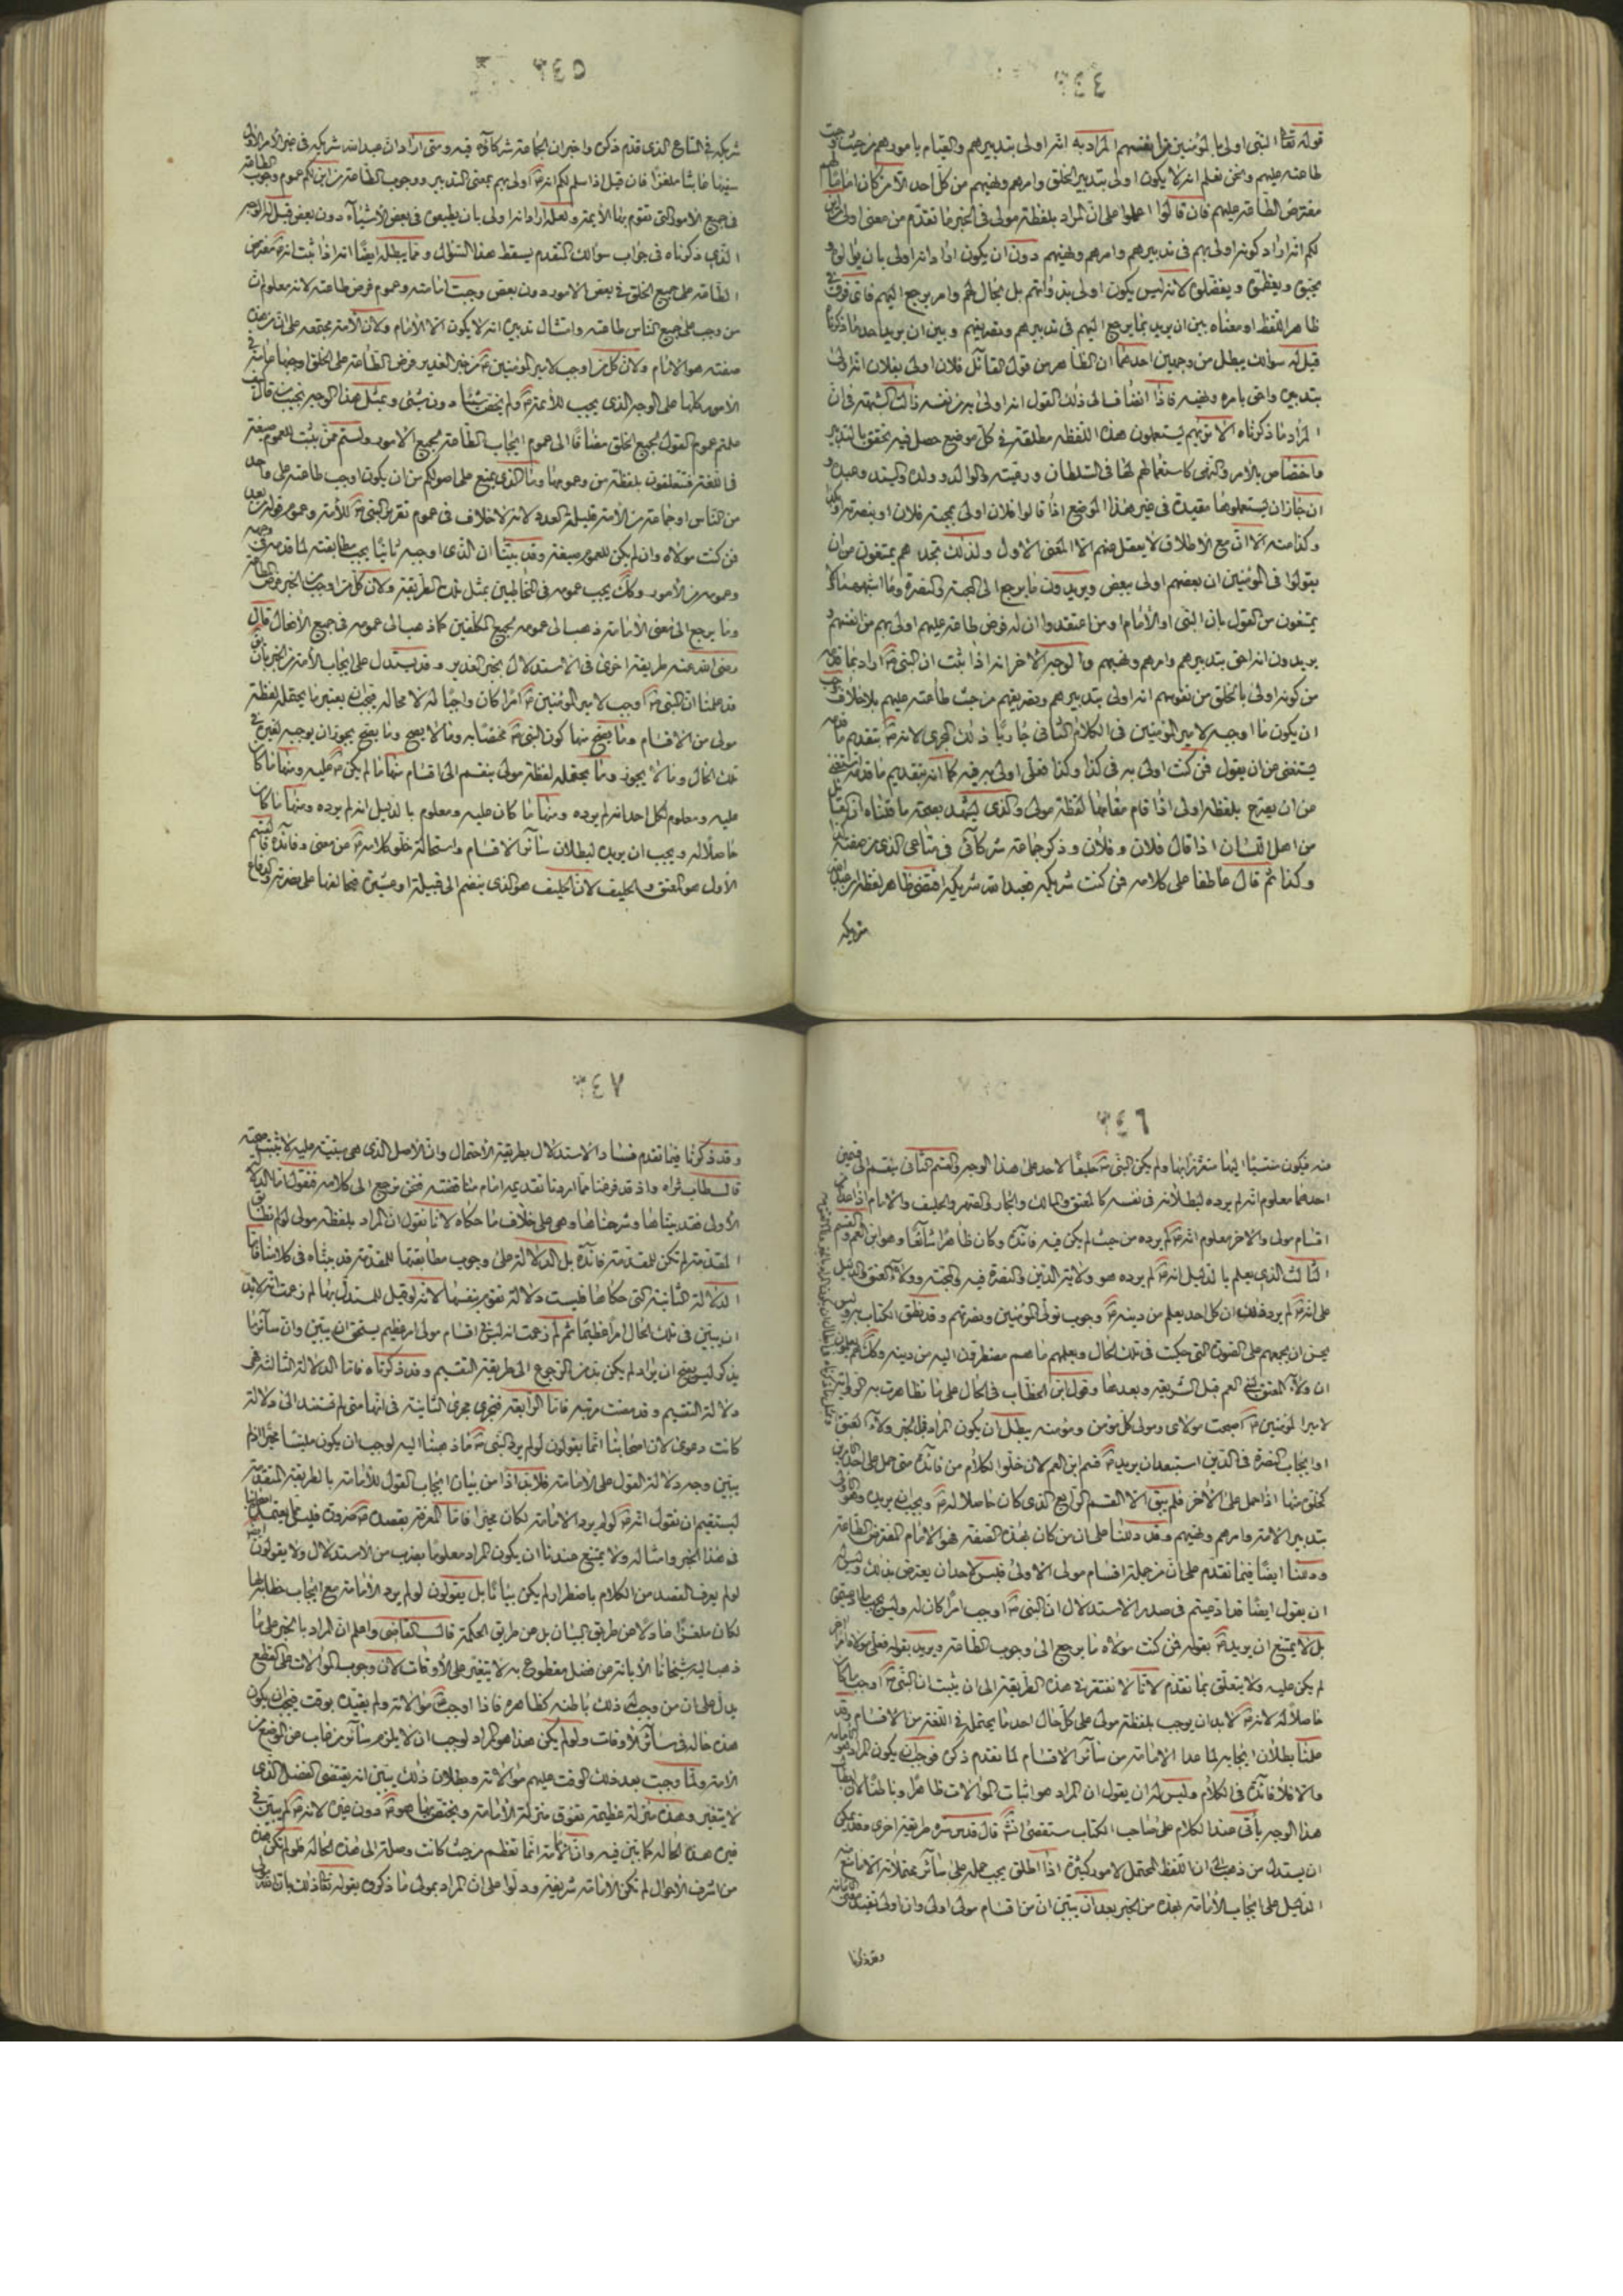 ٣٤٤
قوله تعالى النبى اولى بالمؤمنين من انفسهم المراد به انه اولى بتدبيرهم والقيام بامورهم من حيث وجبت
طاعته عليهم ونحن نعلم انه لا يكون اولى بتدبير الخلق وامرهم ونهيهم من كل احد الا من كان اماما لهم
مفترض الطاعة عليهم فان قالوا اعملوا على ان المراد بلفظة مولى فى الخبر ما تقدم من معنى اولى من اين
لكم انه اراد كونه اولى بهم فى تدبيرهم وامرهم ونهيهم دون ان يكون اراد انه اولى بان يوالوه و
يحبوه ويعظموه ويفضلوه لانه ليس يكون اولى بذواتهم بل بحال لهم وامر يرجع اليهم فاى فرق فى
ظاهر اللفظ او معناه بين ان يريد بما يرجع اليهم فى تدبيرهم وتصريفهم وبين ان يريد احد ما ذكرناه
قيل له سوالك يبطل من وجهين احدهما ان الظاهر من قول القائل فلان اولى بفلان انه اولى
بتدبيره واحق بامره ونهيه فاذا انضاف الى ذلك القول انه اولى به من نفسه زالت الشبهة فى ان
المراد ما ذكرناه الا تراهم يستعملون هذه اللفظة مطلقة فى كل موضع حصل فيه تحقق بالتدبير
واختصاص بالامر والنهى كاستعمالهم لها فى السلطان ورعيته والوالد وولده والسيد وعبده و
ان جاز ان يستعملوها مقيدة فى غير هذا الموضع اذا قالوا فلان اولى بمحبة فلان او بنصرته او بكذا
وكذا منه الا ان مع الاطلاق لا يعقل عنهم الا المعنى الاول ولذلك نجدهم يمتنعون من ان
يقولوا فى المؤمنين ان بعضهم اولى ببعض ويريدون ما يرجع الى المحبة والنصرة وما اشبههما ولا
يمتنعون من القول بان النبى او الامام او من اعتقدوا ان له فرض طاعة عليهم اولى بهم من انفسهم و
يريدون انه احق بتدبيرهم وامرهم ونهيهم والوجه الاخر انه اذا ثبت ان النبى ص اراد بما قدمه
من كونه اولى بالخلق من نفوسهم انه اولى بتدبيرهم وتصريفهم من حيث طاعته عليهم بلا خلاف وجب
ان يكون ما اوجبه لامير المؤمنين فى الكلام الثانى جاريا ذلك المجرى لانه ص بتقديم ما قدمه
يستغنى عن ان يقول فمن كنت اولى به فى كذا وكذا فعلى اولى به فيه كما انه بتقديم ما قدمه استغنى
من ان يصرح بلفظة اولى اذا قام مقامها لفظة مولى والذى يشهد بصحة ما قلناه ان القائل
من اهل اللسان اذا قال فلان وفلان وذكر جماعة شركآئى فى متاعى الذى من صفته كذا
وكذا ثم قال عاطفا على كلامه فمن كنت شريكه فعبد الله شريكه اقتضى ظاهر لفظه ان عبد الله
شريكه
٣٤٥
شريكه فى المتاع الذى قدم ذكره واخبر ان الجماعة شركآؤه فيه ومتى اراد ان عبد الله شريكه فى غير الامر الاول كان
سفيها عابثا ملغزا فان قيل اذا سلم لكم انه ص اولى بهم بمعنى التدبير ووجوب الطاعة من اين لكم عموم وجوب الطاعة
فى جميع الامور التى تقوم بها الائمة ولعله اراد انه اولى بان يطيعوه فى بعض الاشيآء دون بعض قيل له الوجه
الذى ذكرناه فى جواب سوالك المتقدم يسقط هذا السؤال ومما يبطله ايضا انه اذا ثبت انه ص مفترض
الطاعة على جميع الخلق فى بعض الامور دون بعض وجبت امامته وعموم فرض طاعته لانه معلوم ان
من وجب على جميع الناس طاعته وامتثال تدبيره انه لا يكون الا الامام ولان الامة مجتمعة على ان من هذه
صفته هو الامام ولان كل من اوجب لامير المؤمنين ع من خبر الغدير فرض الطاعة على الخلق اوجبها عامة فى
الامور كلها على الوجه الذى يجب للائمة ع ولم يخص شيئا دون شئ وبمثل هذا الوجه نجيب من قال كيف
علمتم عموم القول لجميع الخلق مضافا الى عموم ايجاب الطاعة بجميع الامور ولستم ممن يثبت للعموم صيغة
فى اللغة فتتعلقون بلفظة من وعمومها وما الذى يمنع على اصولكم من ان يكون اوجب طاعته على واحد
من الناس او جماعة من الامة قليلة العدد لانه لا خلاف فى عموم تقرير النبى ص للامة وعموم قوله من بعد
فمن كنت مولاه وان لم يكن للعموم صيغة وقد بينا ان الذى اوجبه ثانيا يجب مطابقته لما قدمه فى وجهه
وعمومه من الامور وكذلك يجب عمومه فى المخاطبين بمثل تلك الطريقة ولان كل من اوجب من الخبر فرض الطاعة
وما يرجع الى معنى الامامة ذهب الى عمومه لجميع المكلفين كما ذهب الى عمومه فى جميع الافعال قال
رضى الله عنه طريقة اخرى فى الاستدلال بخبر الغدير وقد يستدل على ايجاب الامامة من الخبر بان
قد علمنا ان النبى ص اوجب لامير المؤمنين ع امرا كان واجبا له لا محالة فيجب ان يعتبر ما يحتمله لفظة
مولى من الاقسام وما يصح منها كون النبى ص مختصا به وما لا يصح وما يصح يجوز ان يوجبه لغيره فى
تلك الحال وما لا يجوز وما يحتمله لفظة مولى ينقسم الى اقسام منها ما لم يكن ص عليه ومنها ما كان
عليه ومعلوم لكل احد انه لم يرده ومنها ما كان عليه ومعلوم بالدليل انه لم يرده ومنها ما كان
حاصلا له ويجب ان يريده لبطلان سآئر الاقسام واستحالة خلو كلامه ص من معنى وفآئدة فالقسم
الاول هو المعتق والحليف لان الحليف هو الذى ينضم الى قبيلة او عشيرة فيحالفها على نصرته والدفاع
٣٤٦
عنه فيكون منتسبا اليها متعززا بها ولم يكن النبى ص حليفا لاحد على هذا الوجه والقسم الثانى ينقسم الى قسمين
احدهما معلوم انه لم يرده لبطلانه فى نفسه كالمعتق والمالك والجار والصهر والحليف والامام اذا عد من
اقسام مولى والاخر معلوم انه ص لم يرده من حيث لم يكن فيه فائدة وكان ظاهرا شائعا وهو ابن العم والقسم
الثالث الذى يعلم بالدليل انه ص لم يرده هو ولاية الدين والنصرة فيه والمحبة وولآء العتق والدليل
على انه ص لم يرد ذلك ان كل احد يعلم من دينه ص وجوب تولى المؤمنين ونصرتهم وقد نطق الكتاب به وليس
يحسن ان يجمعهم على الصورة التى حكيت فى تلك الحال ويعلمهم ما هم مضطرون اليه من دينه وكذلك هم يعلمون
ان ولآء العتق لبنى العم قبل الشريعة وبعدها وقول ابن الخطاب فى الحال على ما تظاهرت به الرواية
لامير المؤمنين ع اصبحت مولاى ومولى كل مؤمن ومؤمنة يبطل ان يكون المراد بالخبر ولآء العتق
او ايجاب النصرة فى الدين استبعد ان يريد ص قسم ابن العم لان خلو الكلام من فآئدة متى حمل على احد الامرين
كخلوه منها اذا حمل على الآخر فلم يبق الا القسم الرابع الذى كان حاصلا له ص ويجب ان يريده وهو اولى
بتدبير الامة وامرهم ونهيهم وقد دللنا على ان من كان بهذه الصفة فهو الامام المفترض الطاعة
ودللنا ايضا فيما تقدم على ان من جملة اقسام مولى الاولى فليس لاحد ان يعترض بذلك وليس له
ان يقول ايضا قد ادعيتم فى صدر الاستدلال ان النبى ص اوجب امرا كان له وليس يجب ما ادعيتموه
بل لا يمتنع ان يريد ص بقوله فمن كنت مولاه ما يرجع الى وجوب الطاعة ويريد بقوله فعلى مولاه امرا اخر
لم يكن عليه ولا يتعلق بما تقدم لانا لا نفتقر فى هذه الطريقة الى ان يثبت ان النبى ص اوجب ما كان
حاصلا له لانه ص لا بد ان يوجب بلفظة مولى على كل حال احد ما يحتمله فى اللغة من الاقسام وقد
علمنا بطلان ايجابه لما عدا الامامة من سآئر الاقسام لما تقدم ذكره فوجب ان يكون المراد هو الامامة
والا فلا فآئدة فى الكلام وليس له ان يقول ان المراد هو اثبات الموالات ظاهرا وباطنا لان ابطال
هذا الوجه يأتى عند الكلام على صاحب الكتاب مستقصى انشآء قال قدس سره طريقة اخرى وقد يمكن
ان يستدل من ذهب الى ان اللفظ المحتمل لامور كثيرة اذا اطلق يجب حمله على سآئر محتملاته الا ما منع
الدليل على ايجاب الامامة بهذه من الخبر بعد ان يبين ان من اقسام مولى اولى وان اولى يفيد معنى الامامة
وقد ذكرنا
٣٤٧
وقد ذكرنا فيما تقدم فساد الاستدلال بطريقة الاحتمال وان الاصل الذى هى مبنية عليه لا يثبت صحته
قالـ طاب ثراه واذ قد فرضنا مما اردنا تقديمه امام مناقضته فنحن نرجع الى كلامه فنقول اما الدلالة
الاولى فقد بيناها وشرحناها وهى على خلاف ما حكاه لانا نقول ان المراد بلفظة مولى لو لم تطابق
المقدمة لم تكن للمقدمة فائدة بل الدلالة على وجوب مطابقتها للمقدمة قد بيناه فى كلامنا فاما
الدلالة الثانية التى حكاها فليست دلالة تقوم بنفسها لانه لو قيل للمستدل بها لم زعمت انه لا بد
ان يبين فى تلك الحال امرا عظيما ثم لم زعمت انه ليس فى اقسام مولى امر عظيم يستحق ان يبين وان سآئر ما
يذكر ليس يصح ان يراد لم يكن بد من الرجوع الى طريقة التقسيم وقد ذكرناه فاما الدلالة الثالثة فهى
دلالة التقسيم وقد مضت مرتبة فاما الرابعة فتجرى مجرى الثانية فى انها متى لم تستند الى دلالة
كانت دعوى لان اصحابنا انما يقولون لو لم يرد النبى ص ما ذهبنا اليه لوجب ان يكون ملبسا محيرا اذا لم
يبين وجه دلالة القول على الامامة فلا بد اذا من بيان ايجاب القول للامامة بالطريقة المتقدمة
ليستقيم ان نقول انه ص لو لم يرد الامامة لكان محيرا فاما المعرفة بقصده ص ضرورة فليس مما يعتمده اصحابنا
فى هذا الخبر وامثاله ولا يمتنع عندنا ان يكون المراد معلوما بضرب من الاستدلال ولا يقولون ايضا
لو لم يعرف القصد من الكلام باضطرار لم يكن بيانا بل يقولون لو لم يرد الامامة مع ايجاب خطابه لها
لكان ملغزا عادلا عن طريق البيان بل عن طريق الحكمة قالـ القاضى واعلم ان المراد بالخبر على ما
ذهب اليه شيخنا الابانة عن فضل مقطوع به لا يتغير على الاوقات لان وجوب الموالات على القطع
يدل على ان من وجب له ذلك باطنه كظاهره فاذا اوجب ص موالاته ولم يقيده بوقت فيجب ان يكون
هذه حاله فى سآئر الاوقات ولو لم يكن هذا هو المراد لوجب ان لا يلزم سآئر من غاب عن الموضع من
الامة ولما وجبت بعد ذلك الوقت عليهم موالاته وبطلان ذلك يبين انه يقتضى الفضل الذى
لا يتغير وهذه منزلة عظيمة تفوق منزلة الامامة ويختص بها هو ع دون غيره لانه ص لم يبين فى
غيره هذه الحالة كما بين فيه ولان الامامة انما تعظم من حيث كانت وصلة الى هذه الحالة فلو لم تكن هذه
من اشرف الاحوال لم تكن الامامة شريفة ودلوا على ان المراد بمولى ما ذكروه بقوله تعالى ذلك بان الله مولى